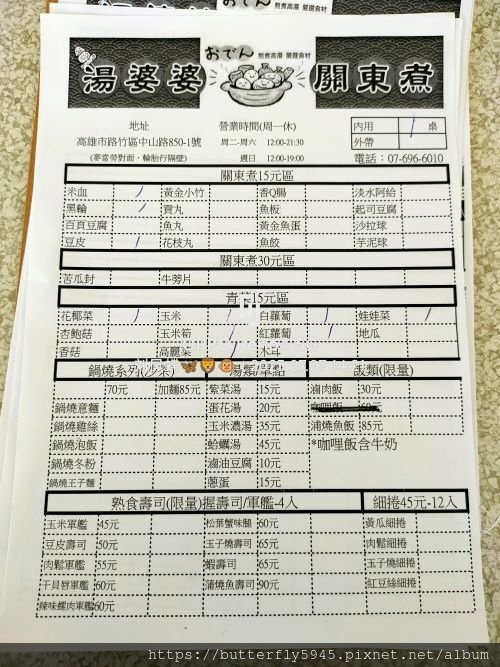 おでん 熬煮高湯 嚴選食材
湯婆婆 關東煮
地址 營業時間(周一休) 內用 1 桌
高雄市路竹區中山路850-1號 周二-周六 12:00-21:30 外帶
(麥當勞對面,輪胎行隔壁) 週日 12:00-19:00 電話:07-696-6010
關東煮15元區
米血 / 黃金小竹 香Q腸 淡水阿給
黑輪 / 貢丸 魚板 起司豆腐
百頁豆腐 魚丸 黃金魚蛋 沙拉球
豆皮 / 花枝丸 魚餃 芋泥球
關東煮30元區
苦瓜封 牛蒡片
青菜15元區
花椰菜 / 玉米 / 白蘿蔔 / 娃娃菜 /
杏鮑菇 玉米筍 / 紅蘿蔔 / 地瓜
香菇 高麗菜 / 木耳
鍋燒系列(沙茶) 湯類單點 飯類(限量)
70元 加麵85元 紫菜湯 15元 滷肉飯 30元
鍋燒意麵 蛋花湯 20元 咖哩飯 60元
鍋燒雞絲 玉米濃湯 35元 蒲燒魚飯 85元
鍋燒泡飯 蛤蠣湯 45元 *咖哩飯含牛奶
鍋燒冬粉 滷油豆腐 10元
鍋燒王子麵 蔥蛋 15元
熟食壽司(限量)握壽司/軍艦-4入 細捲45元-12入
玉米軍艦 45元 松葉蟹味腿 60元 黃瓜細捲
豆皮壽司 50元 玉子燒壽司 65元 肉鬆細捲
肉鬆軍艦 55元 蝦壽司 65元 玉子燒細捲
干貝唇軍艦 60元 蒲燒魚壽司 90元 紅豆絲細捲
辣味螺肉軍艦 60元
https://butterfly5945.pixnet.net/album